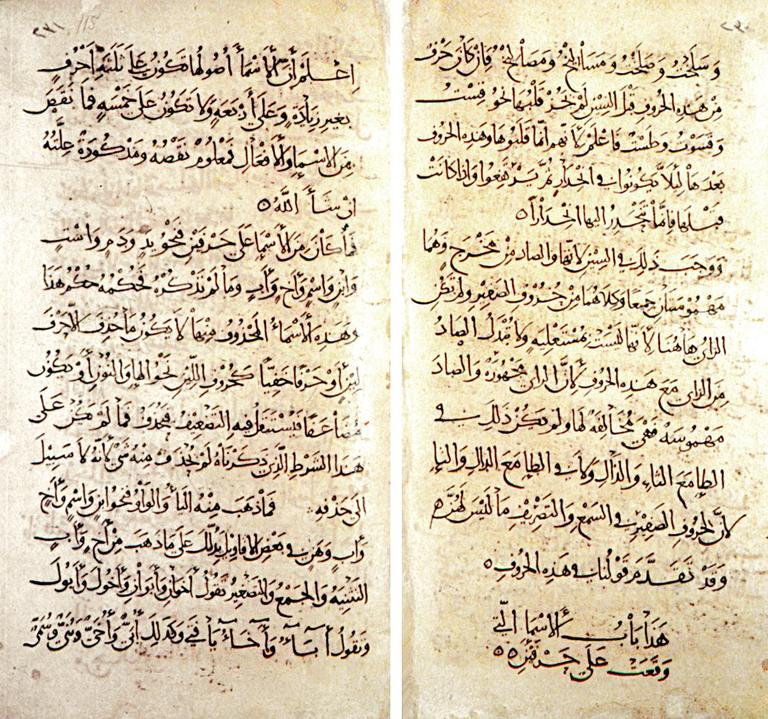 وسلخت وصلخت ومسالخ ومصالخ فإن كان حرف
من هذه الحروف قبل السين لم يجز قلبها نحو قست
وقسوت وطست فاعلم لأنهم إنما قلبوها وهذه الحروف
بعدها ليلا يكونوا في انحدار ثم يرتفعوا واذا كانت
قبلها فإنما تنحدر اليها انحدارا ه
ووجب ذلك في السين لأنها والصاد من مخرج وهما
مهموستان جميعا وكلاهما من حروف الصفير ولم تكن
الزاي هاهنا لأنها ليست بمستعلية ولا تبدل الصاد
من الزاي مع هذه الحروف لأن الزاي مجهورة والصاد
مهموسة فهي مخالفة لها ولم يكن ذلك في
الطا مع التاء والدال ولا في الظا مع الذال والثاء
لأن لحروف الصفير في السمع والتصريف ما ليس لهن
وقد تقدم قولنا في هذه الحروف ه
هذا باب الأسما التي
وقعت على حرفين ه ه
٢٧١ 115
اعلم أن الأسمأ أصولها تكون على ثلثة أحرف
بغير زيادة وعلى أربعة ولا تكون على خمسة فما نقص
من الاسما والأفعال فمعلوم نقصه ومذكورة علته
ان شأ الله ه
فما كان من الأسما على حرفين فنحو يد ودم واست
وابن واسم وأخ وأب وما لم نذكره فحكمه حكم هذا
وهذه الأسماء المحذوف منها لا يكون ما حذف الا حرف
لين أو حرفا خفيا كحروف اللين نحو الها والنون أو يكون
مضاعفا فيستثقل فيه التضعيف فيحذف فما لم يكن على
هذا الشرط الذي ذكرناه لم يحذف منه شي لأنه لا سبيل
الى حذفه فما ذهب منه اليأ والواو فنحو ابن واسم وأخ
وأب وهن في بعض الأقاويل يدلك على ما ذهب من أخ وأب
التثنية والجمع والتصغير تقول أخوان وأبوان وأخوك وأبوك
وتقول أبآء وأخآء يا فتى وكذلك أبي وأخي وبني وسمي